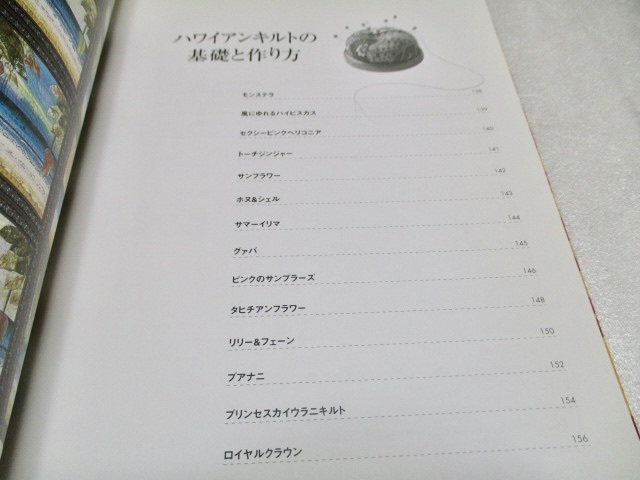 ハワイアンキルトの
基礎と作り方
モンステラ 138
風にゆれるハイビスカス 139
セクシーピンクヘリコニア 140
トーチジンジャー 141
サンフラワー 142
ホヌ&シェル 143
サマーイリマ 144
グァバ 145
ピンクのサンプラーズ 146
タヒチアンフラワー 148
リリー&フェーン 150
プアナニ 152
プリンセスカイウラニキルト 154
ロイヤルクラウン 156